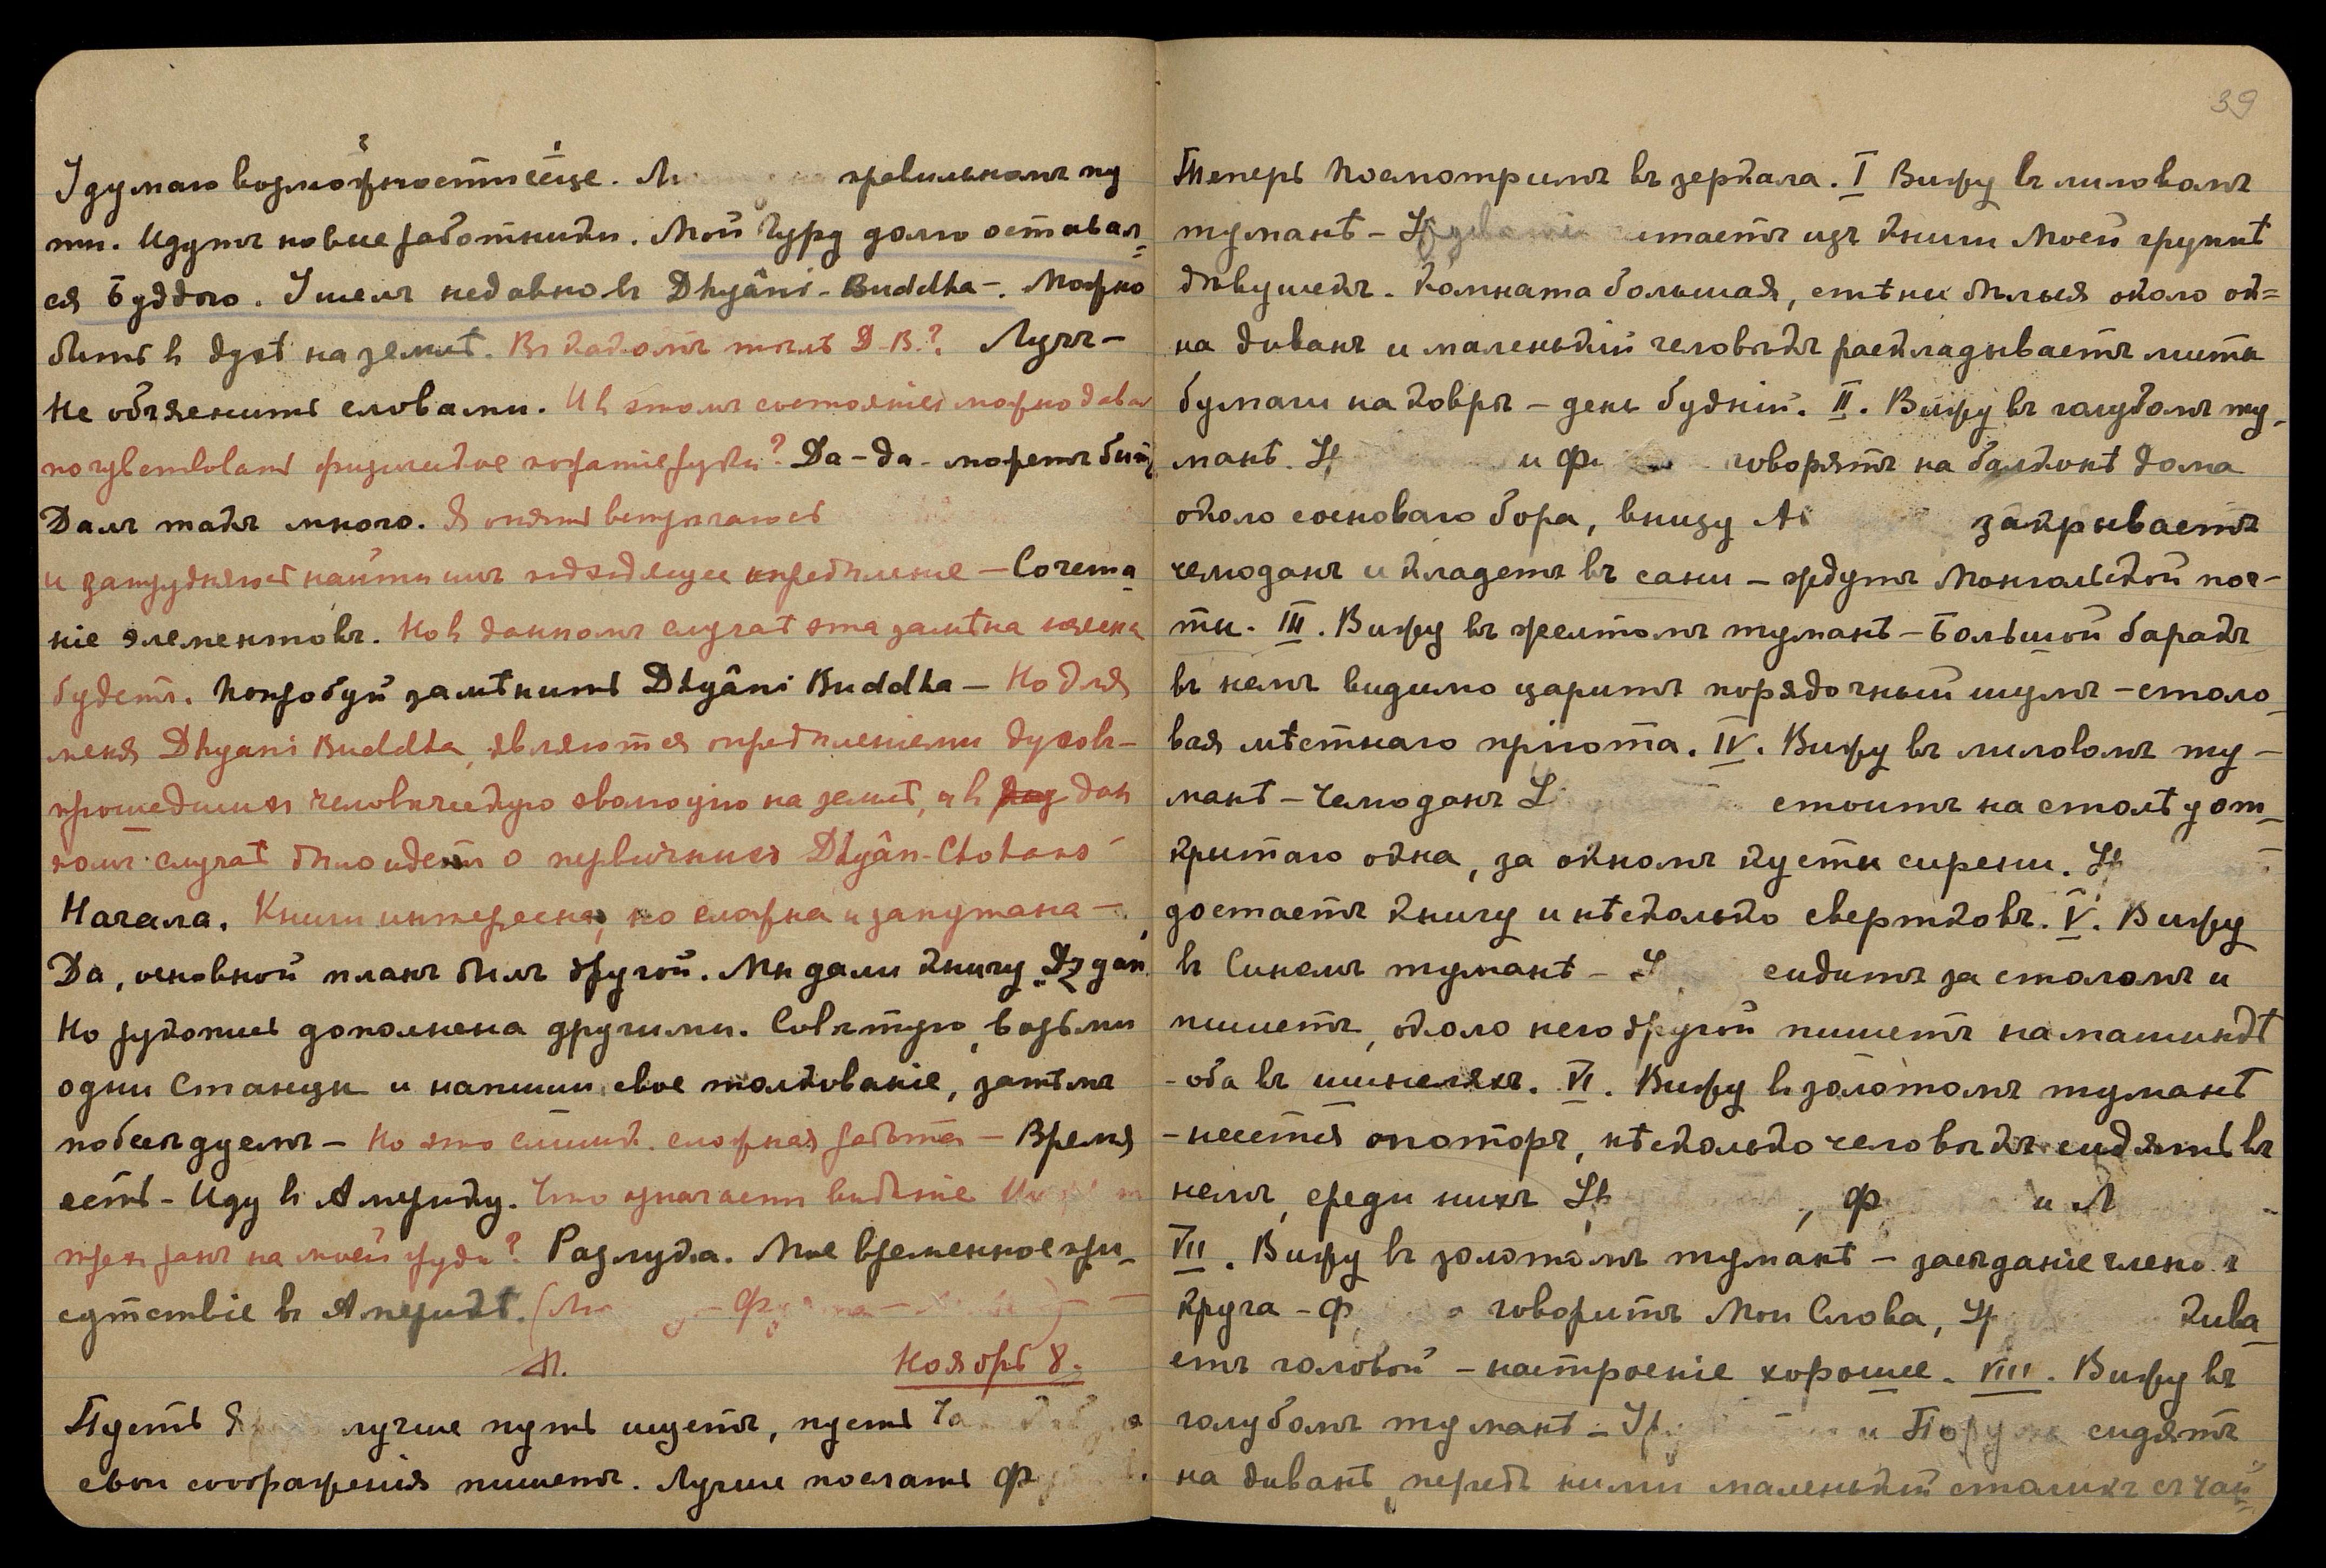 Удумаю возможности еще. правильномъ пу
ти. Идутъ новые работники. Мой Гуру долго оставал=
ся Буддою. Ушелъ недавно въ Dhyâni-Buddha-. Можно
быть в духѣ на землѣ. Въ какомъ тѣлѣ D.B.? Лучъ-
Не объяснить словами. И въ этомъ состояніи можно
почувствовать физическое пожатіе руки? Да-да- можетъ быть
Далъ такъ много. Я опять встрѣчаюсь
и затрудняюсь найти имъ подходящее опредѣленіе - Сочета-
ніе элементовъ. Но въ данномъ случаѣ эта замѣна неясна
будетъ. Попробуй замѣнить Dhyâni Buddha - Но для
меня Dhyani Buddha, являются опредѣленіемъ духовъ-
прошедшихъ человѣческую эволюцію на землѣ, а въ дан
номъ случаѣ было идетъ о первичныхъ Dhyân-Chohans-
Начала. Книги интересна, но сложна и запутана-
Да, основной планъ былъ другой. Мы дали книгу Дзианъ
Но рукопись дополнена другими. Совѣтую, возьми
одни Станцы и напиши свое толкованіе, затѣмъ
побесѣдуемъ - Но это слишк. сложная работа - Время
есть - Иду въ Америку. Что означаетъ видѣніе
трехъ ранъ на моей груди? Разлука. Мое временное при-
сутствіе въ Америкѣ.
Ноябрь 8.
Пусть лучше путь ищетъ, пусть
свои соображенія пишетъ. Лучше послать
39
Теперь посмотримъ въ зеркала. I Вижу въ лиловомъ
туманѣ - читаетъ изъ книги Моей группѣ
дѣвушекъ. Комната большая, стѣны бѣлыя около ок=
на диванъ и маленькій человѣкъ раскладываетъ листы
бумаги на коврѣ - день будній. II. Вижу въ голубомъ ту-
манѣ. и говорятъ на балконѣ дома
около сосноваго бора, внизу закрываетъ
чемоданъ и кладетъ въ сани - ждутъ Монгольской поч-
ты. III. Вижу въ желтомъ туманѣ - Большой баракъ
въ немъ видимо царитъ порядочный шумъ - столо-
вая мѣстнаго пріюта. IV. Вижу въ лиловомъ ту-
манѣ - Чемоданъ стоитъ на столѣ у от-
крытаго окна, за окномъ кусты сирени.
достаетъ книгу и нѣсколько свертковъ. V. Вижу
въ Синемъ туманѣ - сидитъ за столомъ и
пишетъ, около него другой пишетъ на машинкѣ
- оба въ шинеляхъ. VI. Вижу въ золотомъ туманѣ
- несется моторъ, нѣсколько человѣкъ сидятъ въ
немъ, среди нихъ , и
VII. Вижу въ золотомъ туманѣ - засѣданіе
круга - говоритъ Мои Слова, кива-
етъ головой - настроеніе хорошее. VIII. Вижу въ
голубомъ туманѣ - и сидятъ
на диванѣ, передъ ними маленькій столикъ съ чай=